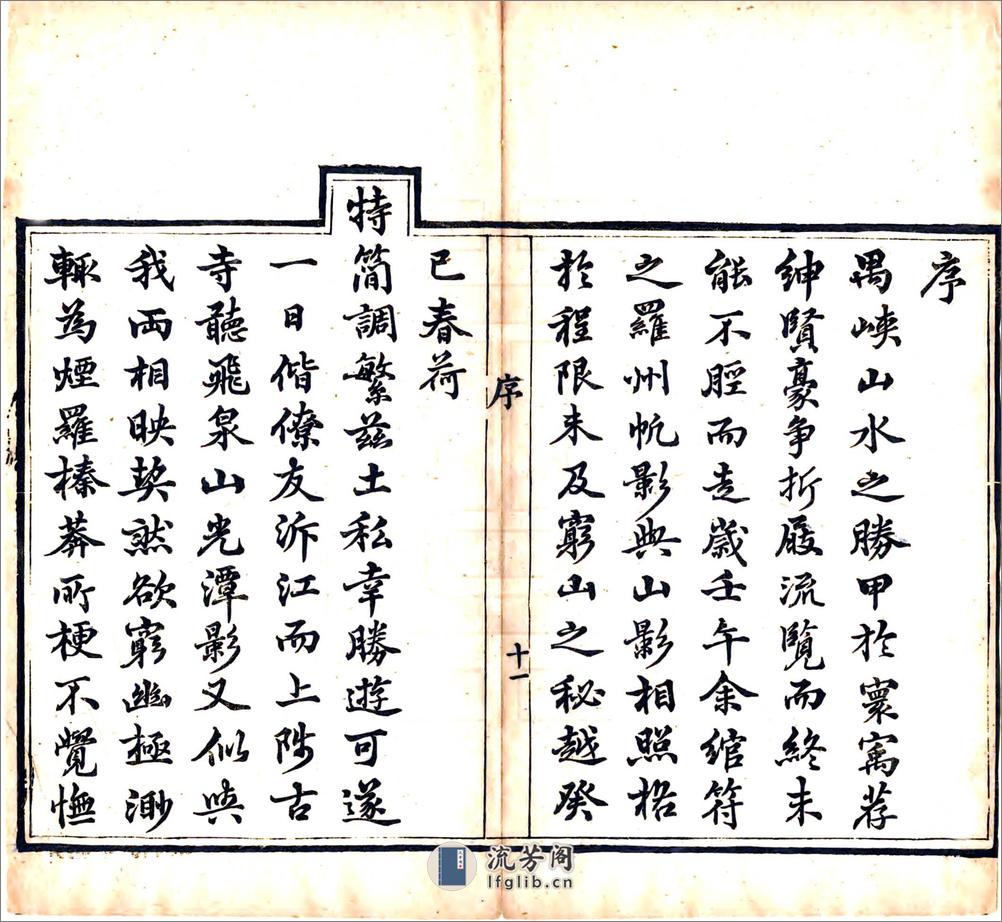 序
禺峽山水之勝甲於寰寓荐
紳賢豪爭折屐流覽而終未
能不脛而走歲壬午余綰符
之羅州帆影與山影相照格
於程限未及窮山之秘越癸
序
十一
巳春荷
特簡調繁茲土私幸勝遊可遂
一日偕僚友泝江而上陟古
寺聽飛泉山光潭影又似與
我兩相映契然欲窮幽極渺
輒為煙羅榛莽所梗不覺憮
流芳阁
lfglib.cn